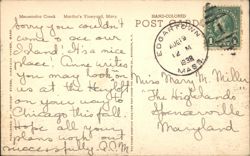 Menemsha Creek Martha's Vineyard, Mass.
HAND-COLORED
POST CARD
Sorry you couldn't
come to see our
Island! It's a nice
place! Anne writes
you may look on
us at the
on your way to
Chicago this fall.
Hope all your
plans work out
successfully
EDGARTOWN
AUG 19
12 M
1938
MASS.
Miss Mary M. Miller
"The Highlands"
Spencerville
Maryland